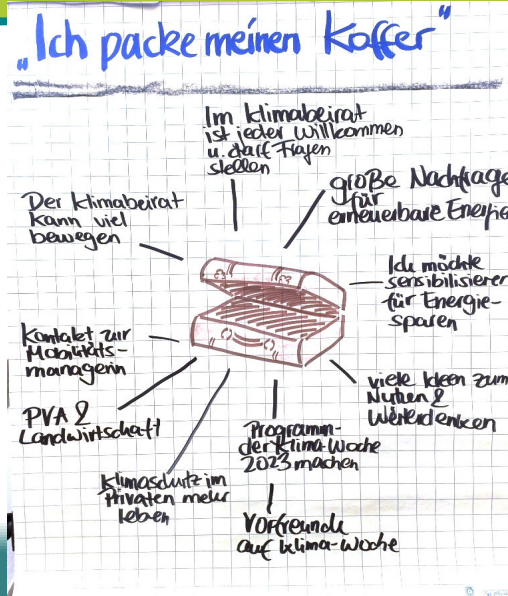 „Ich packe meinen Koffer“
Im Klimabeirat
ist jeder willkommen
u. darf Fragen
stellen
große Nachfrage
für
erneuerbare Energie
Der Klimabeirat
kann viel
bewegen
Ich möchte
sensibilisieren
für Energie-
sparen
Kontakt zur
Mobilitäts-
managerin
viele Ideen zum
Nutzen &
Weiterdenken
PVA &
Landwirtschaft
Programm-
der Klima-Woche
2023 machen
Klimaschutz im
Privaten mehr
leben
Vorfreude
auf Klima-Woche